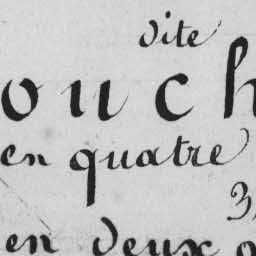 dite
ouch
en quatre
3
en deux